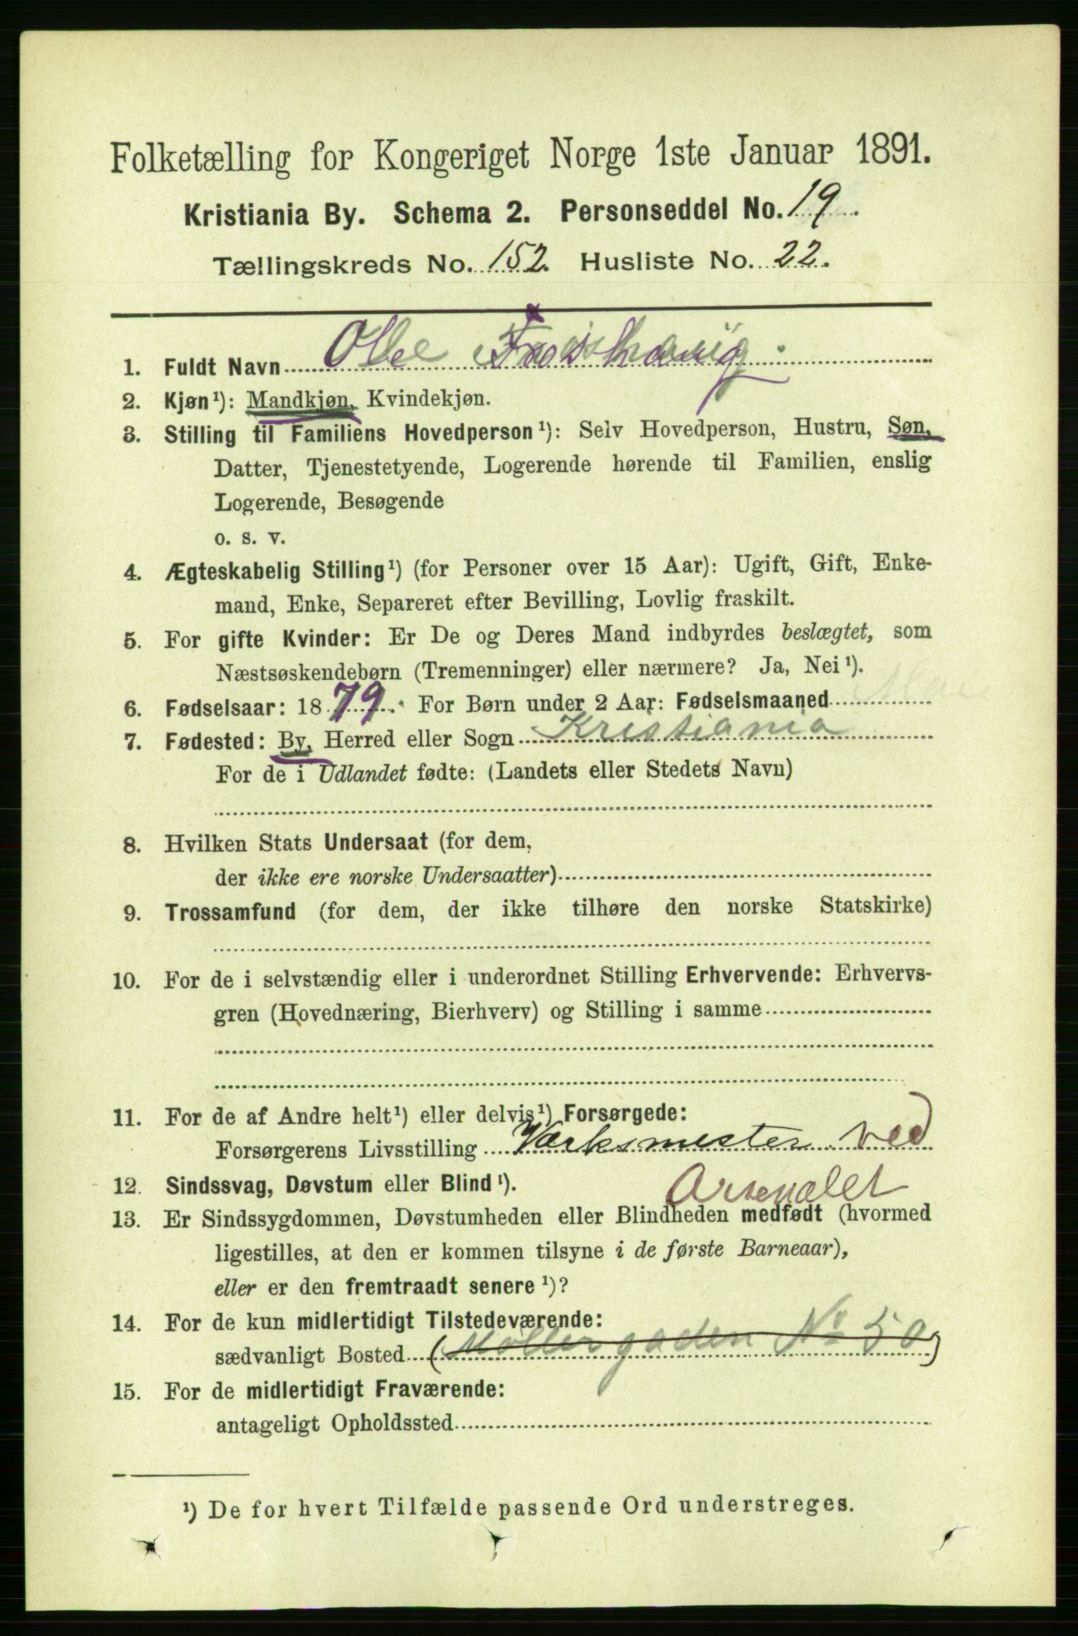 Folketælling for Kongeriget Norge 1ste Januar 1891.
Kristiania By. Schema 2. Personseddel No. 19.
Tællingskreds No. 152. Husliste No. 22.
1. Fuldt Navn Ole Froshaug.
2. Kjøn¹): Mandkjøn, Kvindekjøn.
3. Stilling til Familiens Hovedperson¹): Selv Hovedperson, Hustru, Søn,
Datter, Tjenestetyende, Logerende hørende til Familien, enslig
Logerende, Besøgende
o. s. v.
4. Ægteskabelig Stilling¹) (for Personer over 15 Aar): Ugift, Gift, Enke-
mand, Enke, Separeret efter Bevilling, Lovlig fraskilt.
5. For gifte Kvinder: Er De og Deres Mand indbyrdes beslægtet, som
Næstsøskendebørn (Tremenninger) eller nærmere? Ja, Nei¹).
6. Fødselsaar: 1879. For Børn under 2 Aar: Fødselsmaaned
7. Fødested: By, Herred eller Sogn Kristiania
For de i Udlandet fødte: (Landets eller Stedets Navn)
8. Hvilken Stats Undersaat (for dem,
der ikke ere norske Undersaatter)
9. Trossamfund (for dem, der ikke tilhøre den norske Statskirke)
10. For de i selvstændig eller i underordnet Stilling Erhvervende: Erhvervs-
gren (Hovednæring, Bierhverv) og Stilling i samme
11. For de af Andre helt¹) eller delvis¹) Forsørgede:
Forsørgerens Livsstilling Værksmester ved
Arsenalet
12. Sindssvag, Døvstum eller Blind¹).
13. Er Sindssygdommen, Døvstumheden eller Blindheden medfødt (hvormed
ligestilles, at den er kommen tilsyne i de første Barneaar),
eller er den fremtraadt senere¹)?
14. For de kun midlertidigt Tilstedeværende:
sædvanligt Bosted (Møllergaden No 50)
15. For de midlertidigt Fraværende:
antageligt Opholdssted
¹) De for hvert Tilfælde passende Ord understreges.